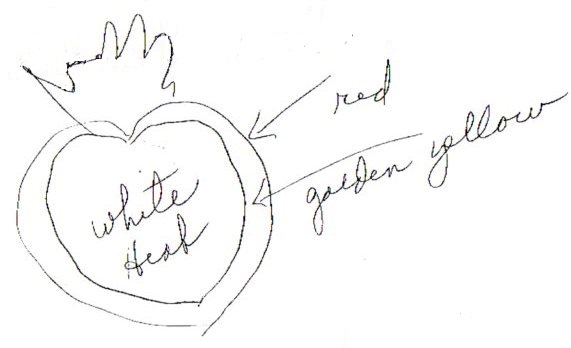 red
golden yellow
white